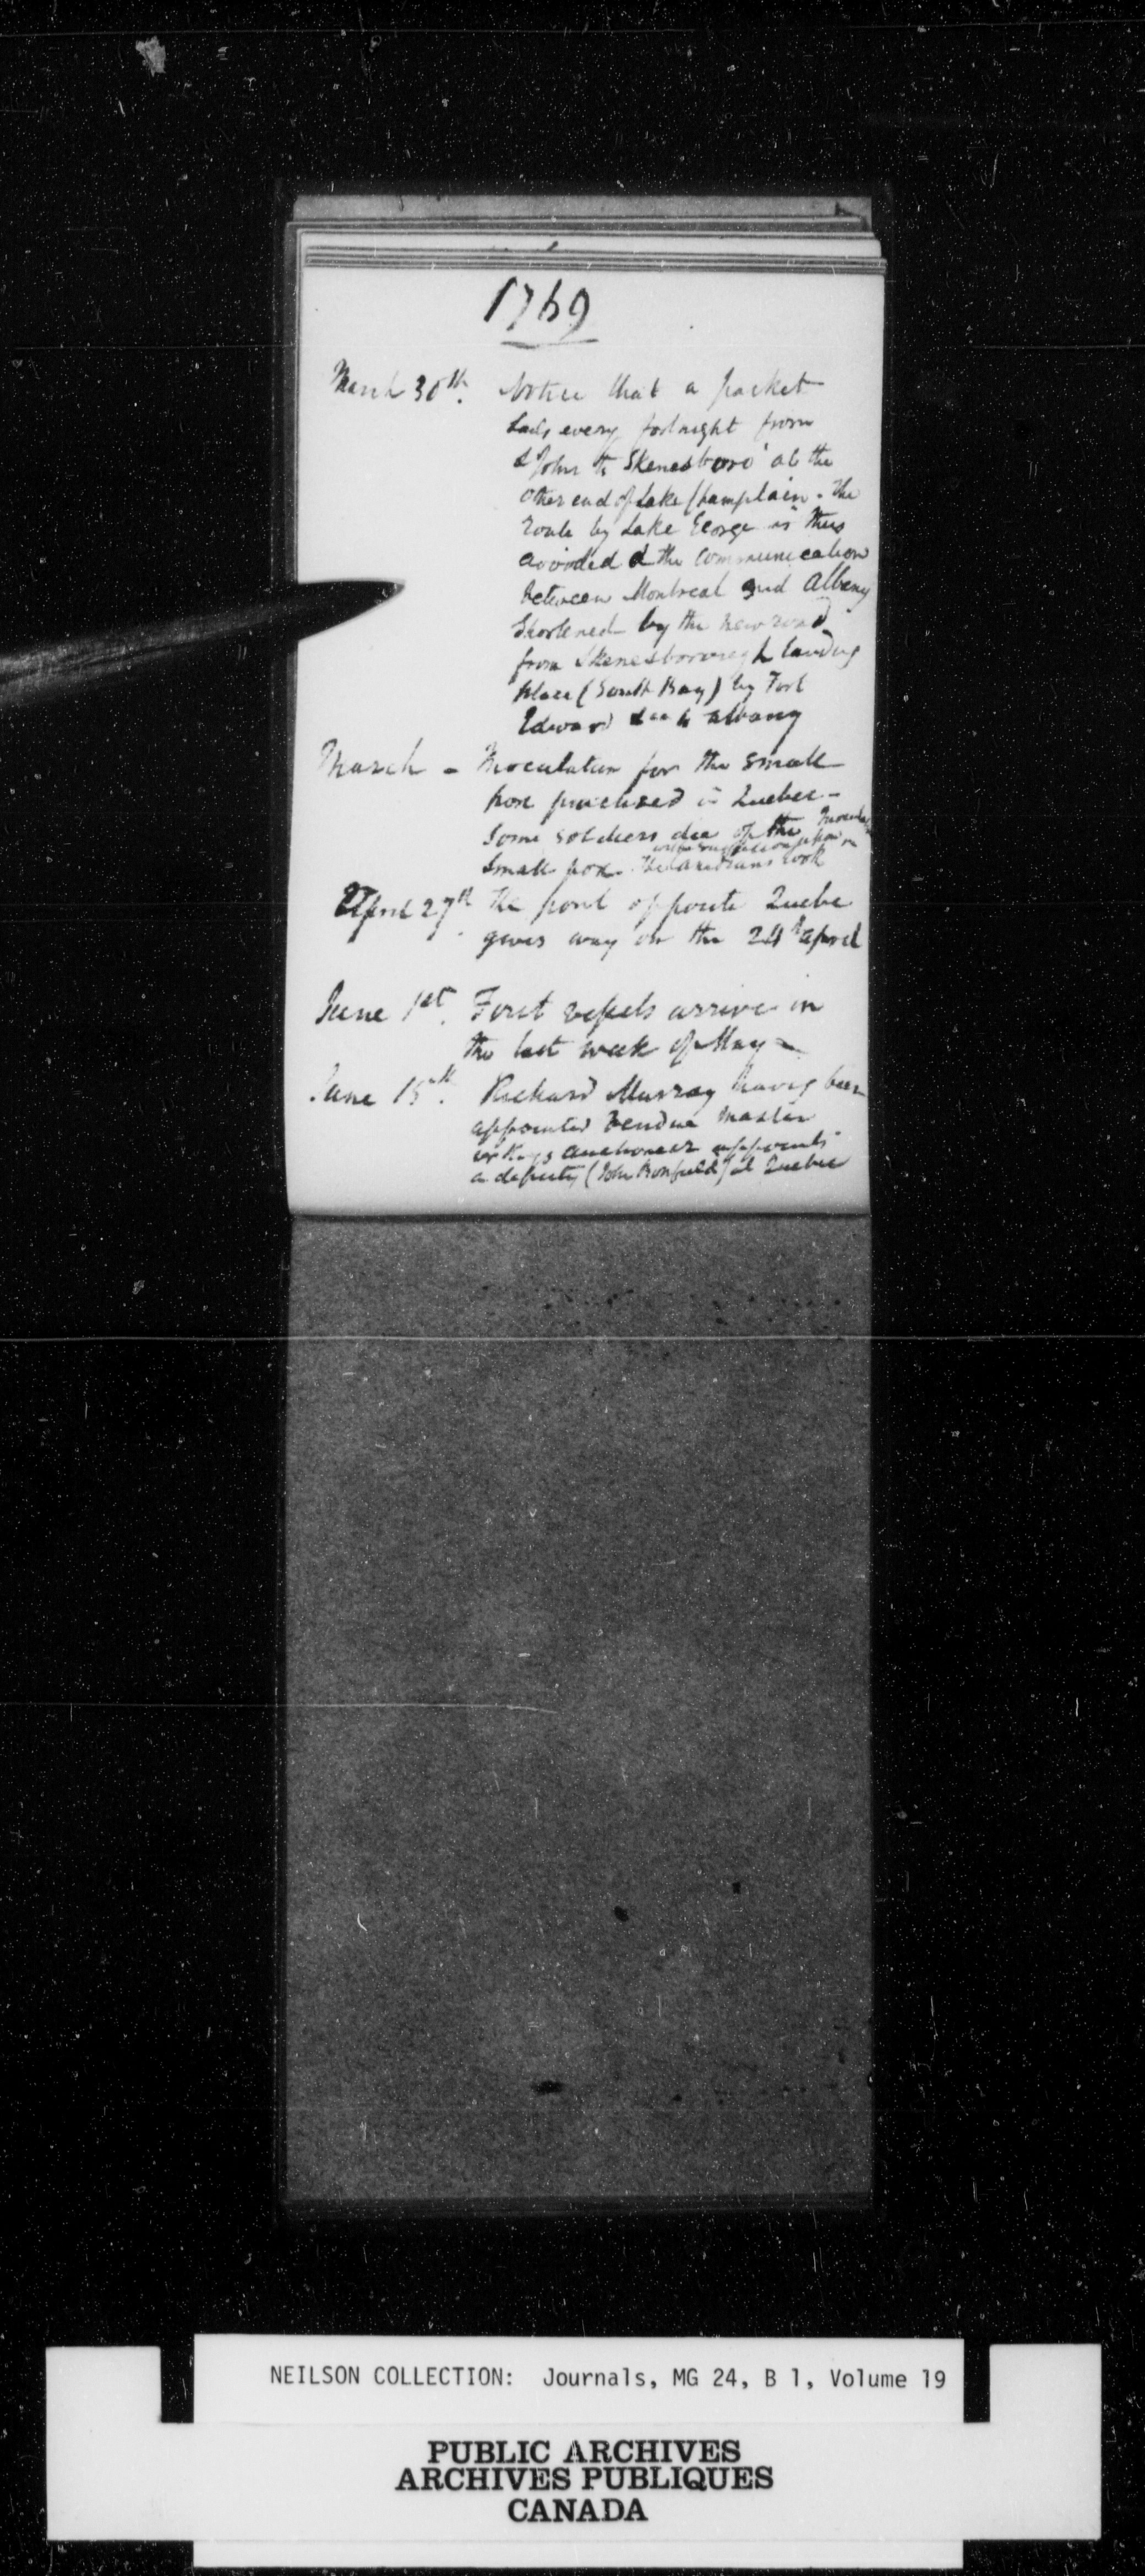 1769
March 30th. Notice that a packet
sails every fortnight from
St John to Skenesboro' at the
other end of Lake Champlain. The
route by Lake George is thus
avoided & the communication
between Montreal and Albany
shortened by the new road
from Skenesborough landing
place (South Bay) by Fort
Edward to Albany
March - Inoculation for the small
pox practised in Quebec -
Some soldiers die of the
small pox. The Canadians look
upon Inoculation
April 27th The pont opposite Quebec
gives way on the 24th April
June 1st. First vessels arrive in
the last week of May -
June 15th. Richard Murray having been
appointed Vendue Master
or Kings auctioneer appoints
a deputy (John Bonfield) at Quebec
NEILSON COLLECTION: Journals, MG 24, B 1, Volume 19
PUBLIC ARCHIVES
ARCHIVES PUBLIQUES
CANADA